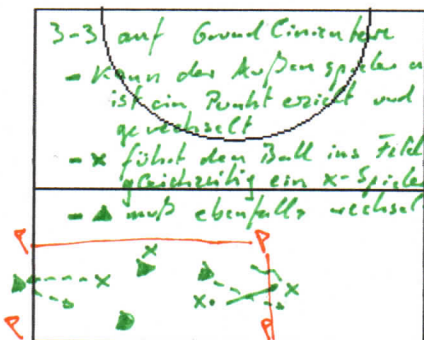 3-3 auf Grundlinientore
- Kann der Außenspieler
ist ein Punkt erzielt und
gewechselt
- x führt den Ball ins Feld
gleichzeitig ein x-Spieler
- ▲ muß ebenfalls wechsel
P P
x
x x. x
P P